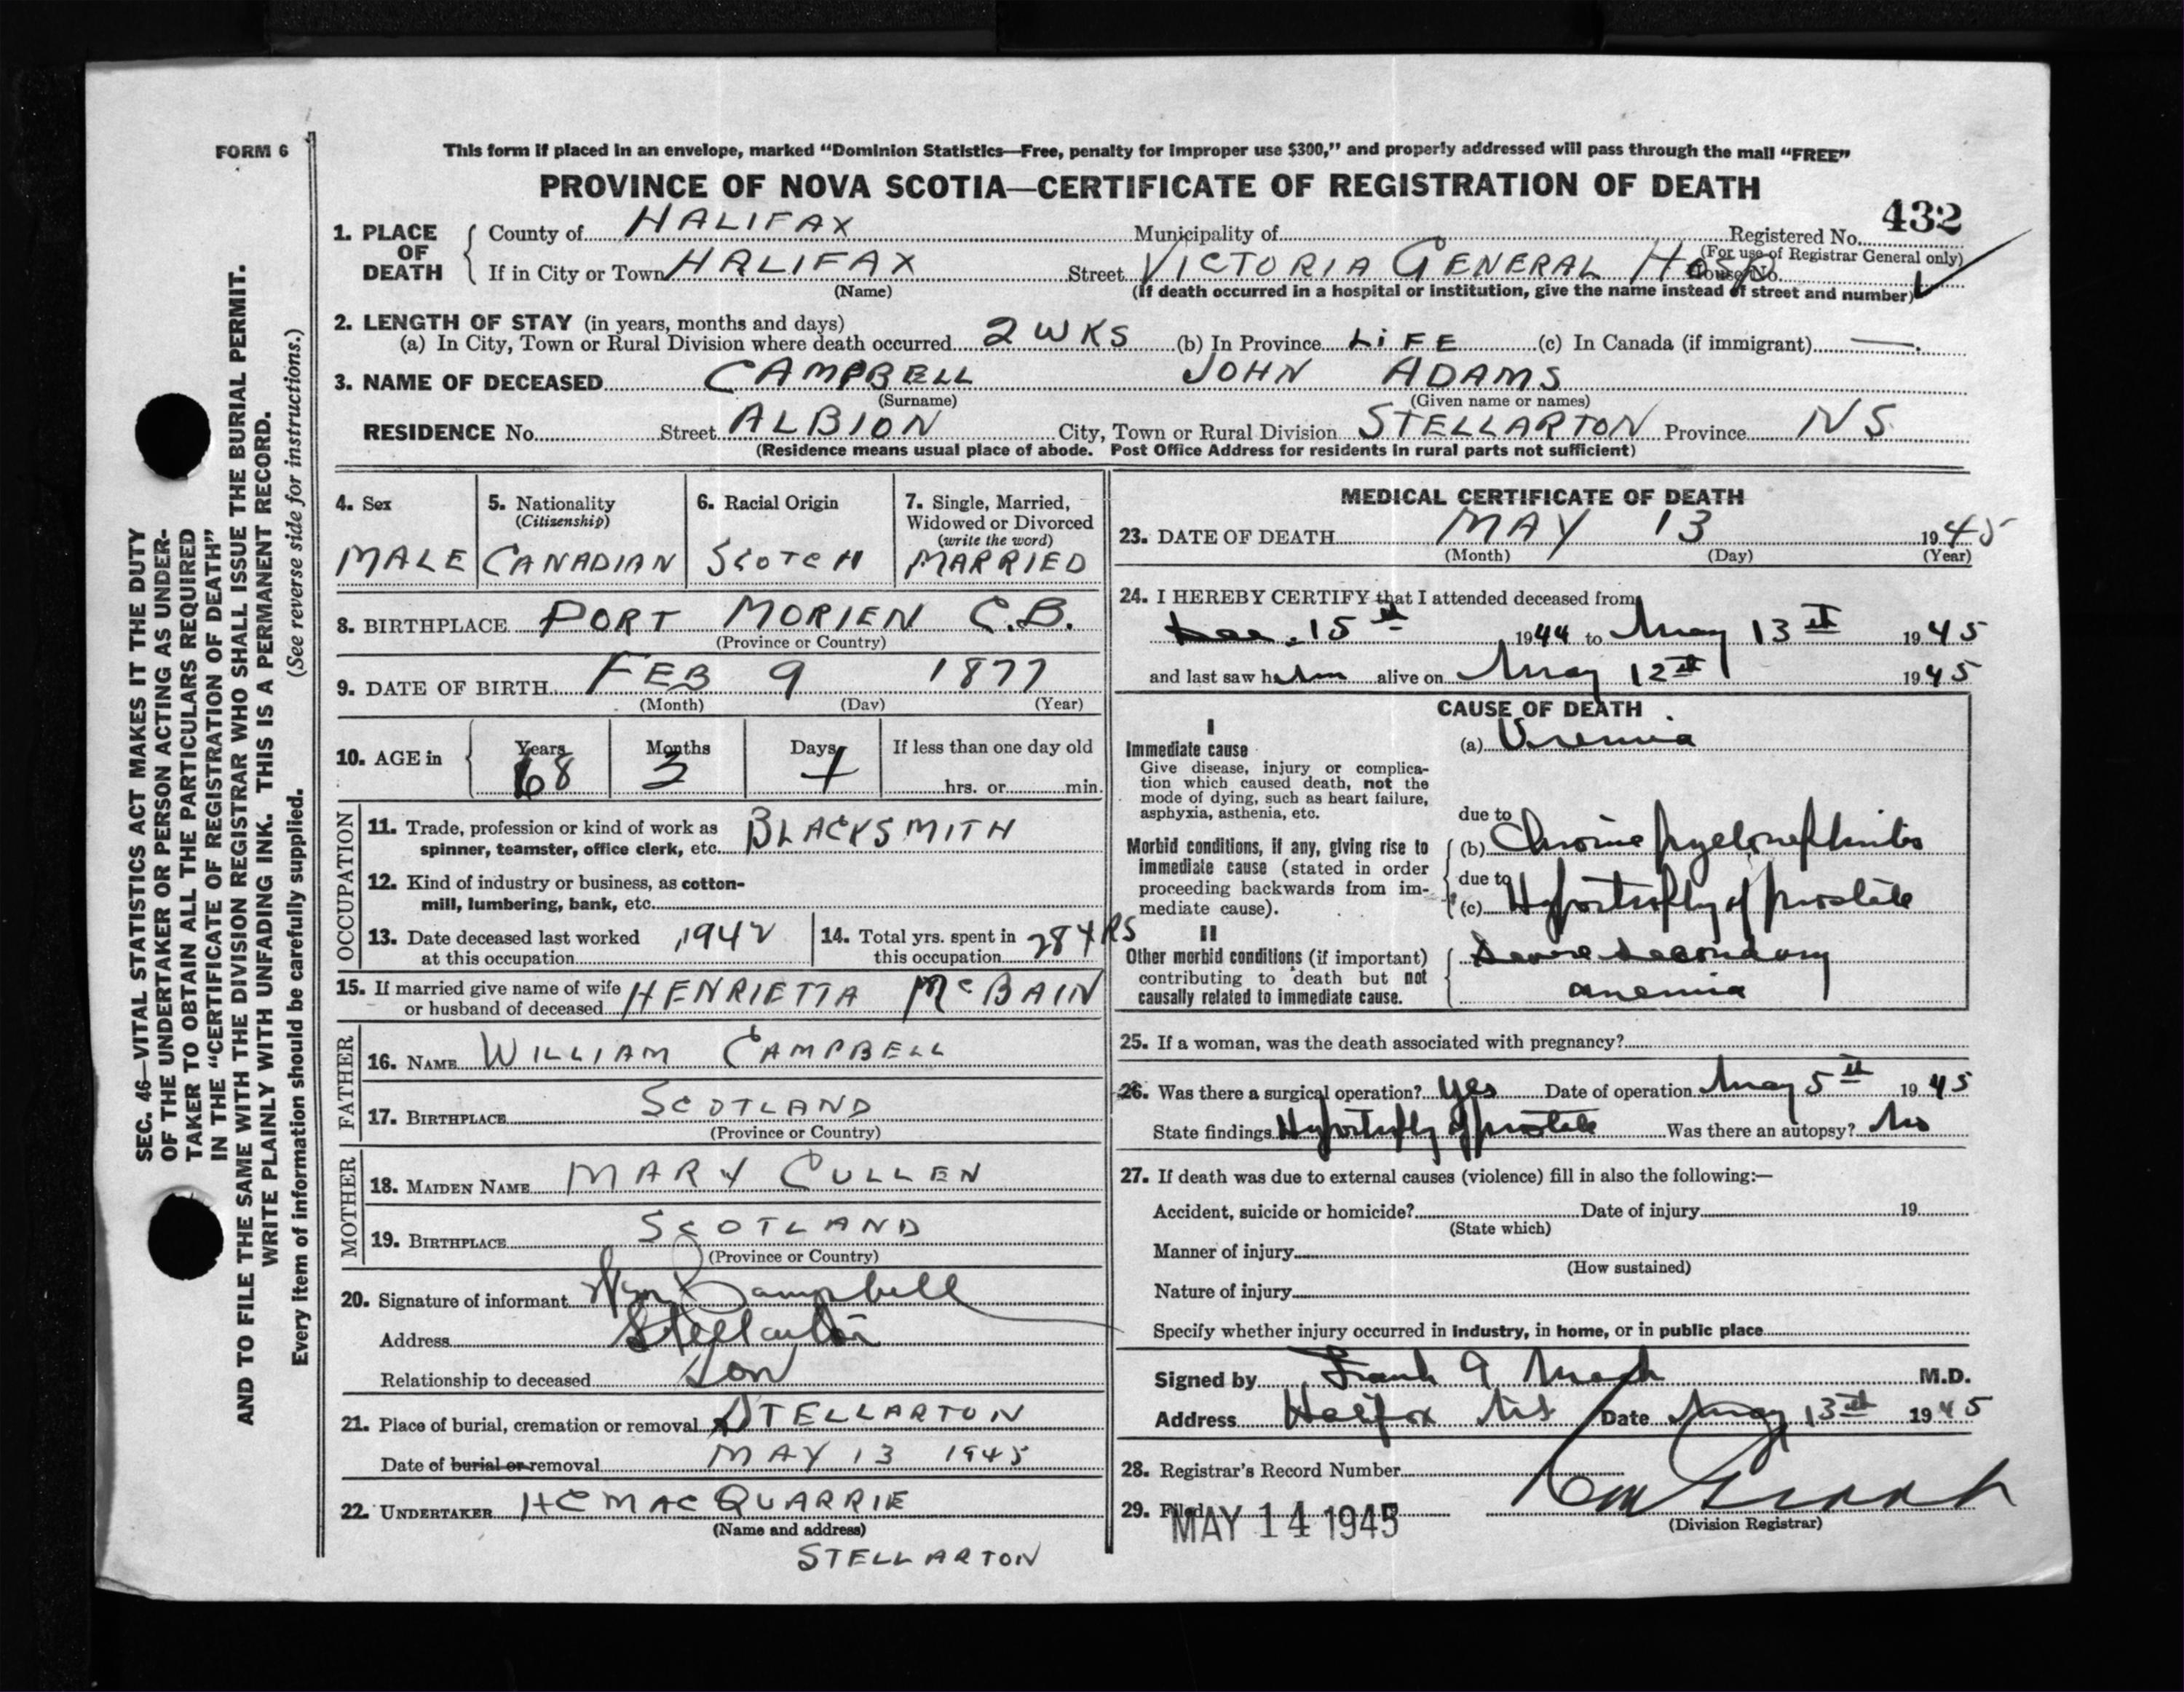 FORM 6
This form if placed in an envelope, marked "Dominion Statistics—Free, penalty for improper use $300," and properly addressed will pass through the mail "FREE"
PROVINCE OF NOVA SCOTIA—CERTIFICATE OF REGISTRATION OF DEATH
432
1. PLACE OF DEATH
County of HALIFAX Municipality of Registered No.
(For use of Registrar General only)
If in City or Town HALIFAX Street VICTORIA GENERAL HOSP House No.
(Name) (If death occurred in a hospital or institution, give the name instead of street and number)
2. LENGTH OF STAY (in years, months and days)
(a) In City, Town or Rural Division where death occurred 2 WKS (b) In Province LiFE (c) In Canada (if immigrant) —
3. NAME OF DECEASED CAMPBELL JOHN ADAMS
(Surname) (Given name or names)
RESIDENCE No. Street ALBION City, Town or Rural Division STELLARTON Province NS
(Residence means usual place of abode. Post Office Address for residents in rural parts not sufficient)
4. Sex
MALE
5. Nationality
(Citizenship)
CANADIAN
6. Racial Origin
SCOTCH
7. Single, Married,
Widowed or Divorced
(write the word)
MARRIED
8. BIRTHPLACE PORT MORIEN C.B.
(Province or Country)
9. DATE OF BIRTH FEB 9 1877
(Month) (Day) (Year)
10. AGE in
Years Months Days If less than one day old
68 3 4 hrs. or min.
OCCUPATION
11. Trade, profession or kind of work as
spinner, teamster, office clerk, etc. BLACKSMITH
12. Kind of industry or business, as cotton-
mill, lumbering, bank, etc.
13. Date deceased last worked
at this occupation 1942
14. Total yrs. spent in
this occupation 28 YRS
15. If married give name of wife
or husband of deceased HENRIETTA McBAIN
FATHER
16. NAME WILLIAM CAMPBELL
17. BIRTHPLACE SCOTLAND
(Province or Country)
MOTHER
18. MAIDEN NAME MARY CULLEN
19. BIRTHPLACE SCOTLAND
(Province or Country)
20. Signature of informant Wm Campbell
Address Stellarton
Relationship to deceased Son
21. Place of burial, cremation or removal STELLARTON
Date of burial or removal MAY 13 1945
22. UNDERTAKER HC MACQUARRIE
(Name and address)
STELLARTON
MEDICAL CERTIFICATE OF DEATH
23. DATE OF DEATH MAY 13 1945
(Month) (Day) (Year)
24. I HEREBY CERTIFY that I attended deceased from
Dec. 15th 1944 to May 13th 1945
and last saw him alive on May 12th 1945
CAUSE OF DEATH
I
Immediate cause
Give disease, injury or complica-
tion which caused death, not the
mode of dying, such as heart failure,
asphyxia, asthenia, etc.
(a) Uremia
due to
Morbid conditions, if any, giving rise to
immediate cause (stated in order
proceeding backwards from im-
mediate cause).
(b) Chronic pyelonephritis
due to
(c) Hypertrophy of prostate
II
Other morbid conditions (if important)
contributing to death but not
causally related to immediate cause.
Severe secondary
anemia
25. If a woman, was the death associated with pregnancy?
26. Was there a surgical operation? Yes Date of operation May 5th 1945
State findings Hypertrophy of prostate Was there an autopsy? No
27. If death was due to external causes (violence) fill in also the following:—
Accident, suicide or homicide? Date of injury 19
(State which)
Manner of injury
(How sustained)
Nature of injury
Specify whether injury occurred in industry, in home, or in public place
Signed by Frank G Mack M.D.
Address Halifax NS Date May 13th 1945
28. Registrar's Record Number
29. Filed MAY 14 1945
(Division Registrar)
SEC. 46—VITAL STATISTICS ACT MAKES IT THE DUTY
OF THE UNDERTAKER OR PERSON ACTING AS UNDER-
TAKER TO OBTAIN ALL THE PARTICULARS REQUIRED
IN THE "CERTIFICATE OF REGISTRATION OF DEATH"
AND TO FILE THE SAME WITH THE DIVISION REGISTRAR WHO SHALL ISSUE THE BURIAL PERMIT.
WRITE PLAINLY WITH UNFADING INK. THIS IS A PERMANENT RECORD.
Every item of information should be carefully supplied. (See reverse side for instructions.)